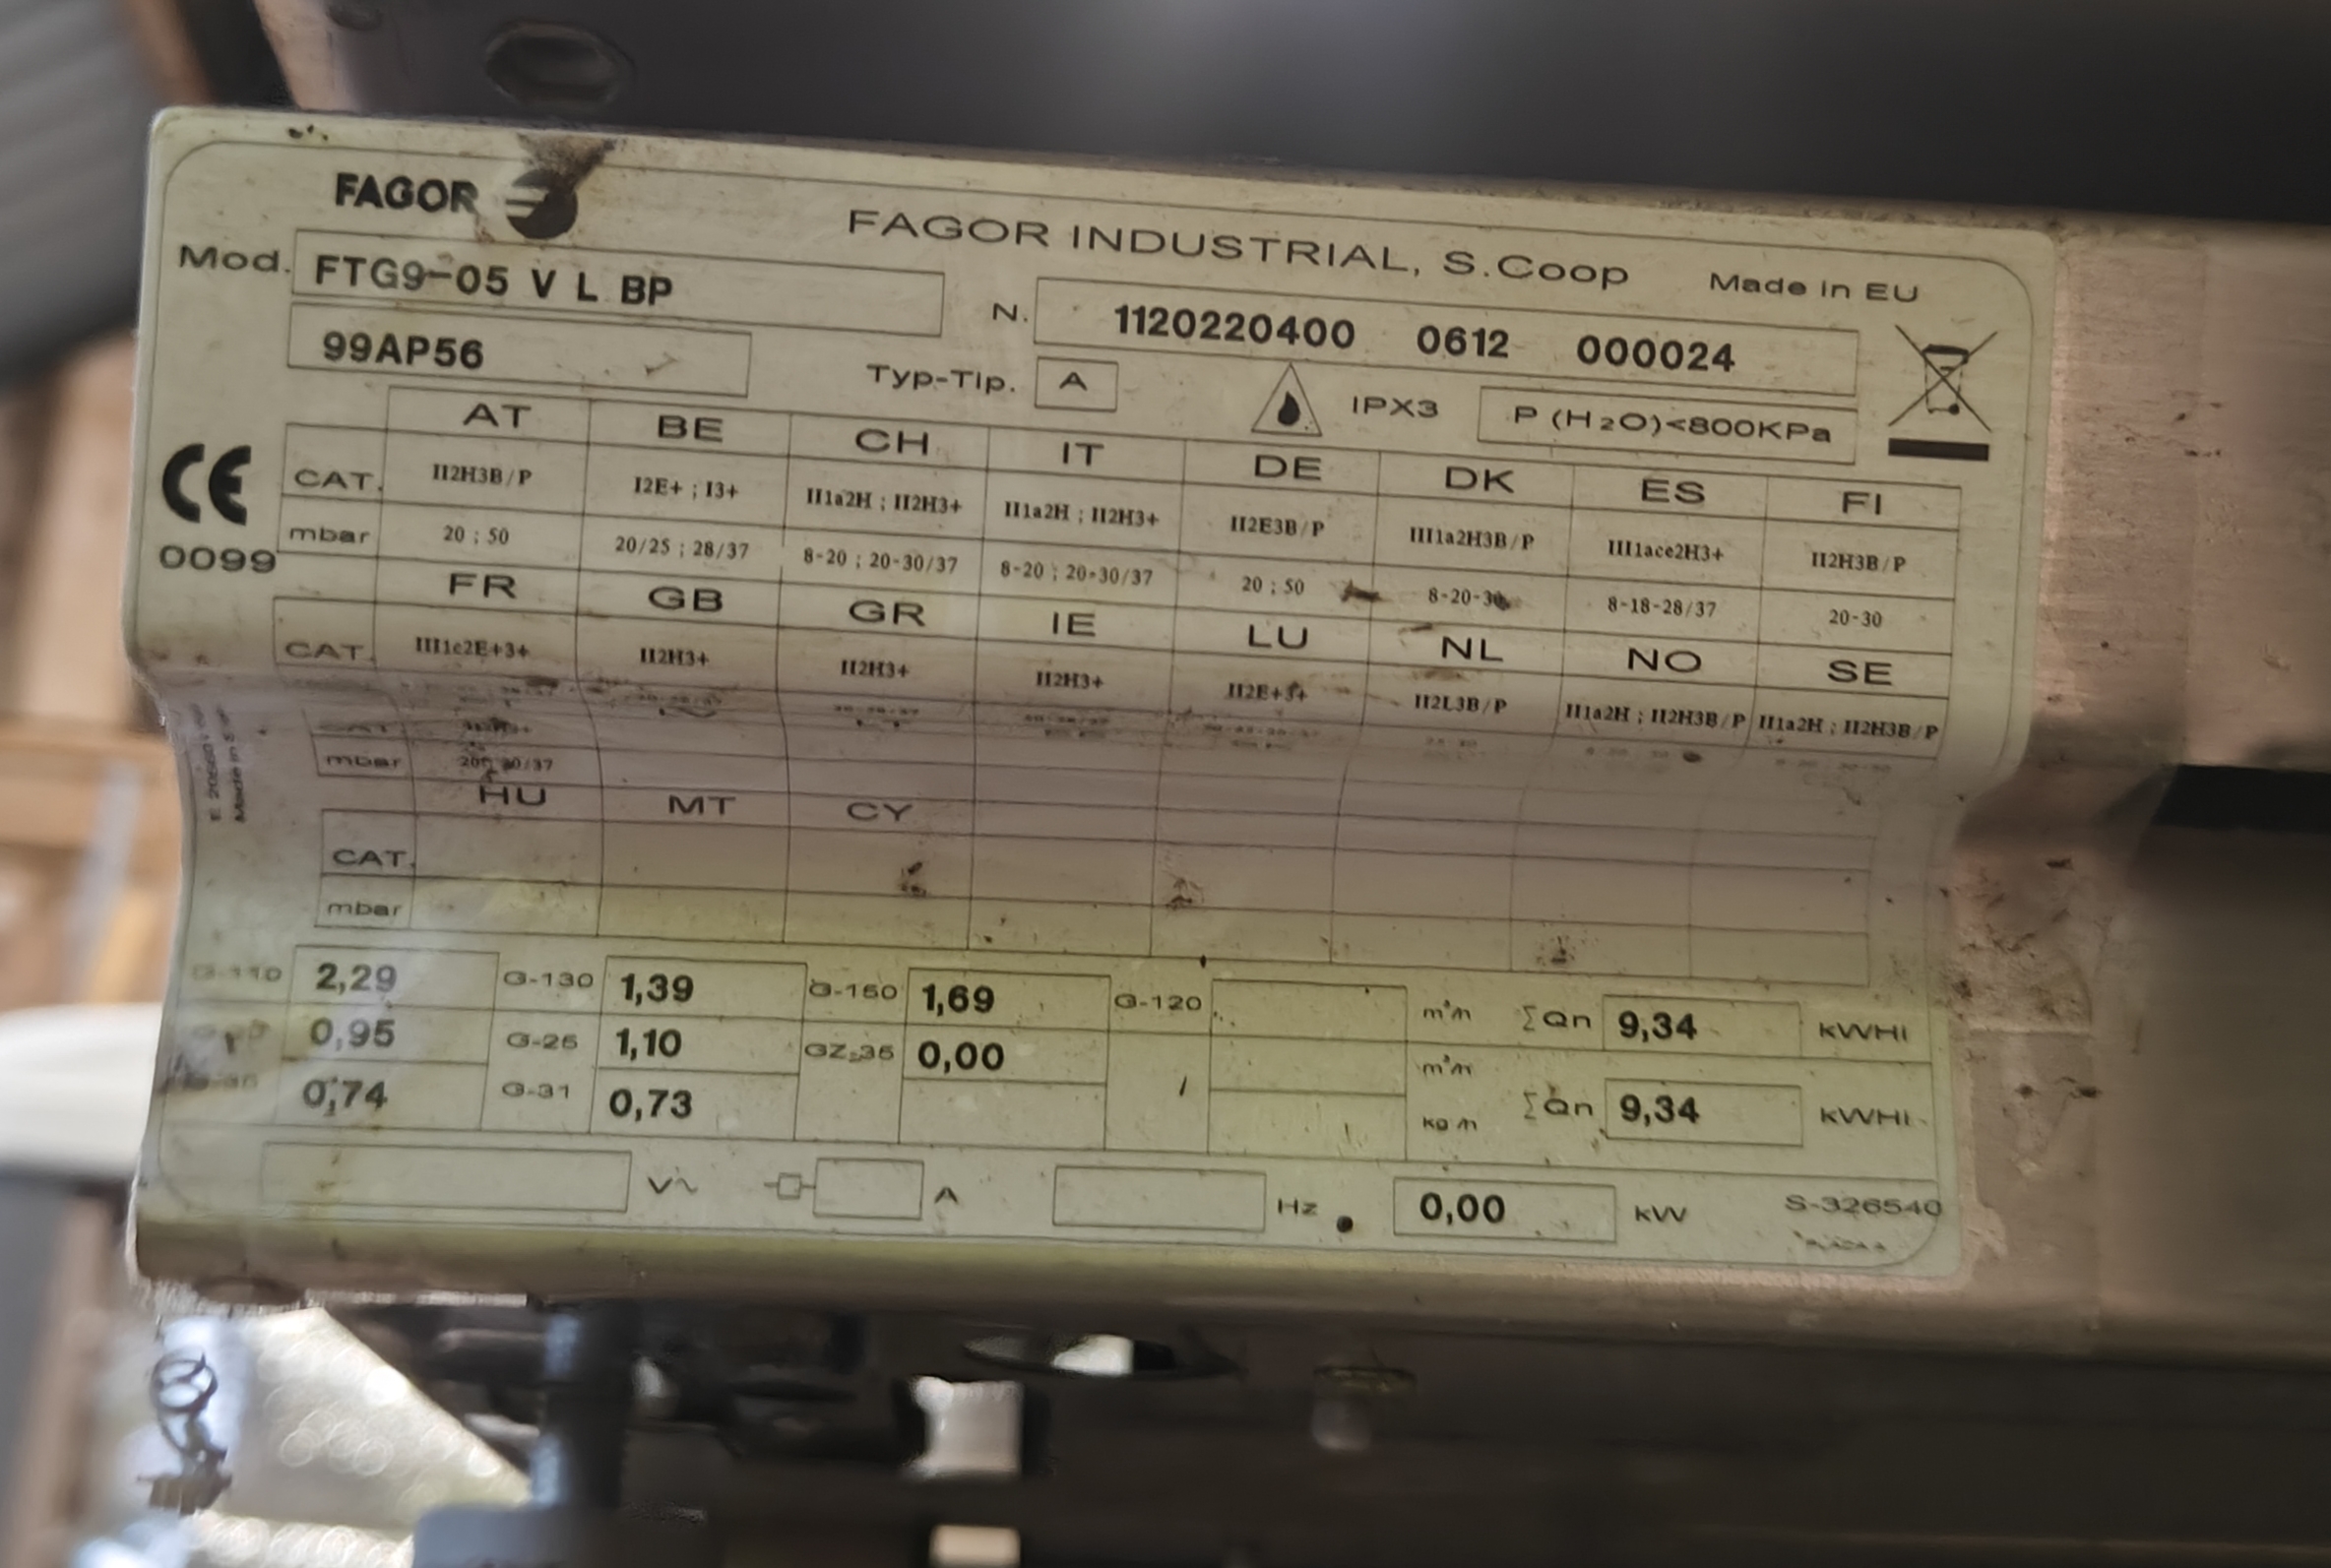 FAGOR
FAGOR INDUSTRIAL, S.Coop Made in EU
Mod. FTG9-05 V L BP
N. 1120220400 0612 000024
99AP56
Typ-Tip. A IPX3 P (H2O)<800KPa
AT BE CH IT DE DK ES FI
CAT. II2H3B/P I2E+ ; I3+ II1a2H ; II2H3+ II1a2H ; II2H3+ II2E3B/P III1a2H3B/P III1ace2H3+ II2H3B/P
mbar 20 ; 50 20/25 ; 28/37 8-20 ; 20-30/37 8-20 ; 20-30/37 20 ; 50 8-20-30 8-18-28/37 20-30
CE
0099
FR GB GR IE LU NL NO SE
CAT. III1c2E+3+ II2H3+ II2H3+ II2H3+ II2E+3+ II2L3B/P II1a2H ; II2H3B/P II1a2H ; II2H3B/P
CAT
mbar
HU MT CY
CAT.
mbar
G-110 2,29 G-130 1,39 G-150 1,69 G-120 m³/h ∑Qn 9,34 kWHi
0,95 G-25 1,10 GZ-35 0,00 m³/h
0,74 G-31 0,73 kg/h ∑Qn 9,34 kWHi
V~ A Hz 0,00 kW S-326540